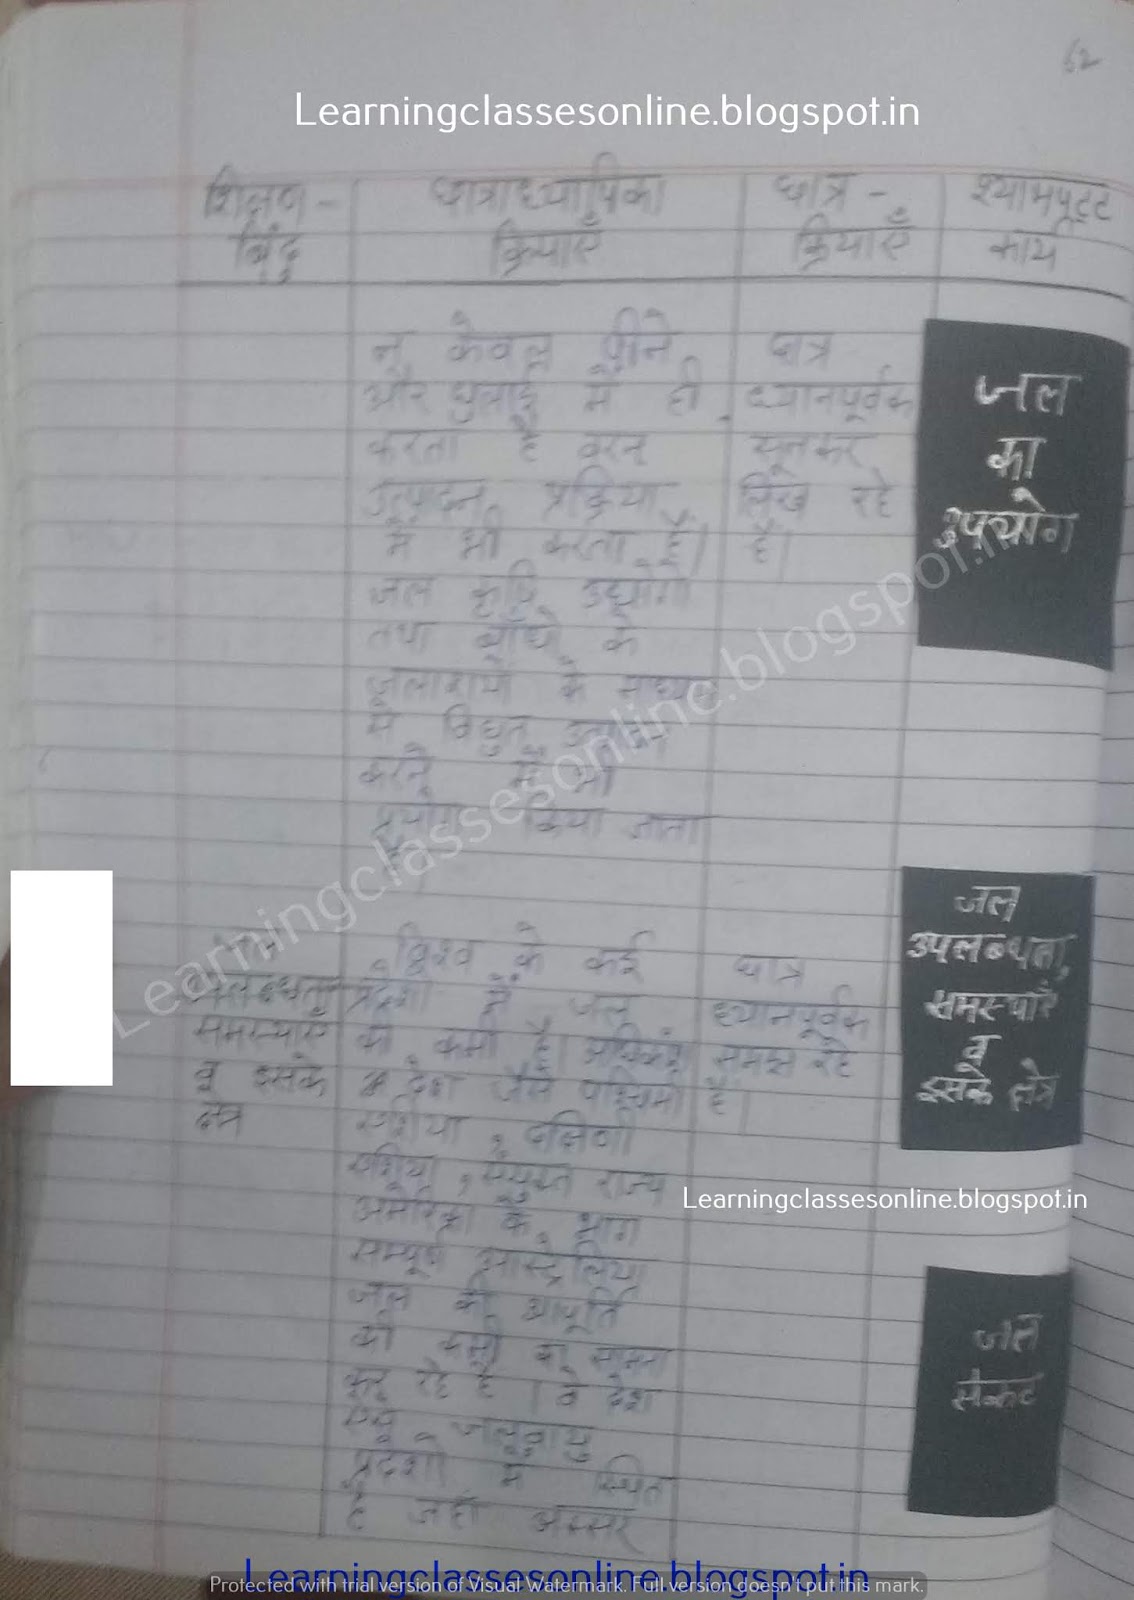 62
Learningclassesonline.blogspot.in
शिक्षण - बिंदु
छात्राध्यापिका क्रियाएँ
छात्र - क्रियाएँ
श्यामपट्ट कार्य
न केवल पीने
और धुलाई में ही
करता है वरन्
उत्पादन प्रक्रिया
में भी करता है।
जल कृषि उद्योगों
तथा बाँधो के
जलाशयों के माध्यम
से विधुत उत्पादन
करने में भी
प्रयोग किया जाता
है।
छात्र
ध्यानपूर्वक
सुनकर
लिख रहे
है।
जल
का
उपयोग
जल
उपलब्धता
समस्याएँ
व इसके
क्षेत्र
विश्व के कई
प्रदेशो में जल
की कमी है। अधिकांश
देश जैसे पश्चिमी
एशिया, दक्षिणी
एशिया, संयुक्त राज्य
अमेरिका के भाग
सम्पूर्ण आस्ट्रेलिया
जल की आपूर्ति
की कमी का सामना
कर रहे है। वे देश
जलवायु
प्रदेशो में स्थित
है जहाँ अक्सर
छात्र
ध्यानपूर्वक
समझ रहे
है।
जल
उपलब्धता,
समस्याएँ
व
इसके क्षेत्र
Learningclassesonline.blogspot.in
जल
संकट
Learningclassesonline.blogspot.in
Learningclassesonline.blogspot.in
Protected with trial version of Visual Watermark. Full version doesn't put this mark.